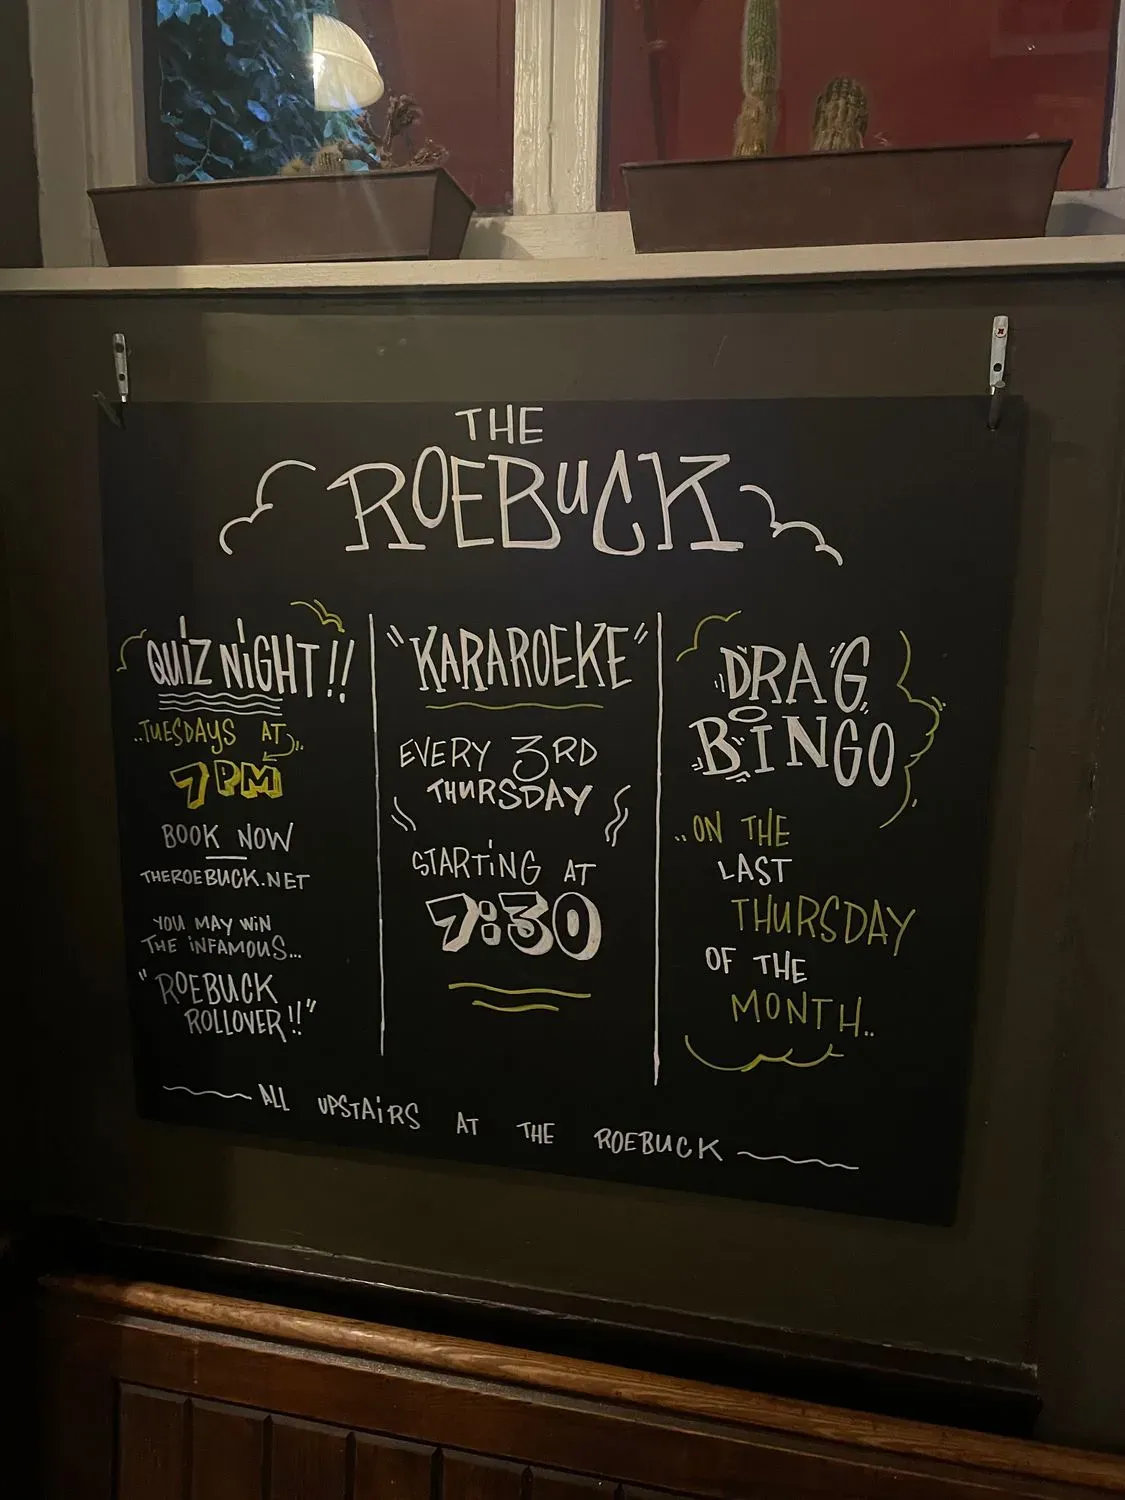 THE
ROEBUCK
QUIZ NIGHT!!
..TUESDAYS AT..
7PM
BOOK NOW
THEROEBUCK.NET
YOU MAY WIN
THE INFAMOUS...
"ROEBUCK
ROLLOVER!!"
"KARAROEKE"
EVERY 3RD
THURSDAY
STARTING AT
7:30
DRAG
BINGO
..ON THE
LAST
THURSDAY
OF THE
MONTH..
ALL UPSTAIRS AT THE ROEBUCK